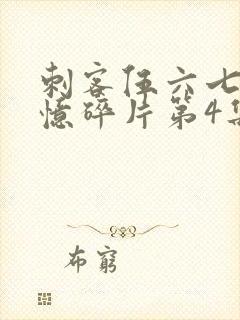 刺客伍六七
憶碎片第4集
布窮